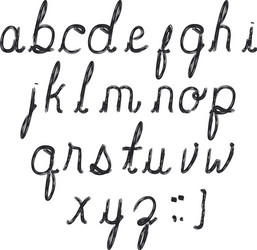 abcdefghi
jklmnop
qrstuvw
xyz::]